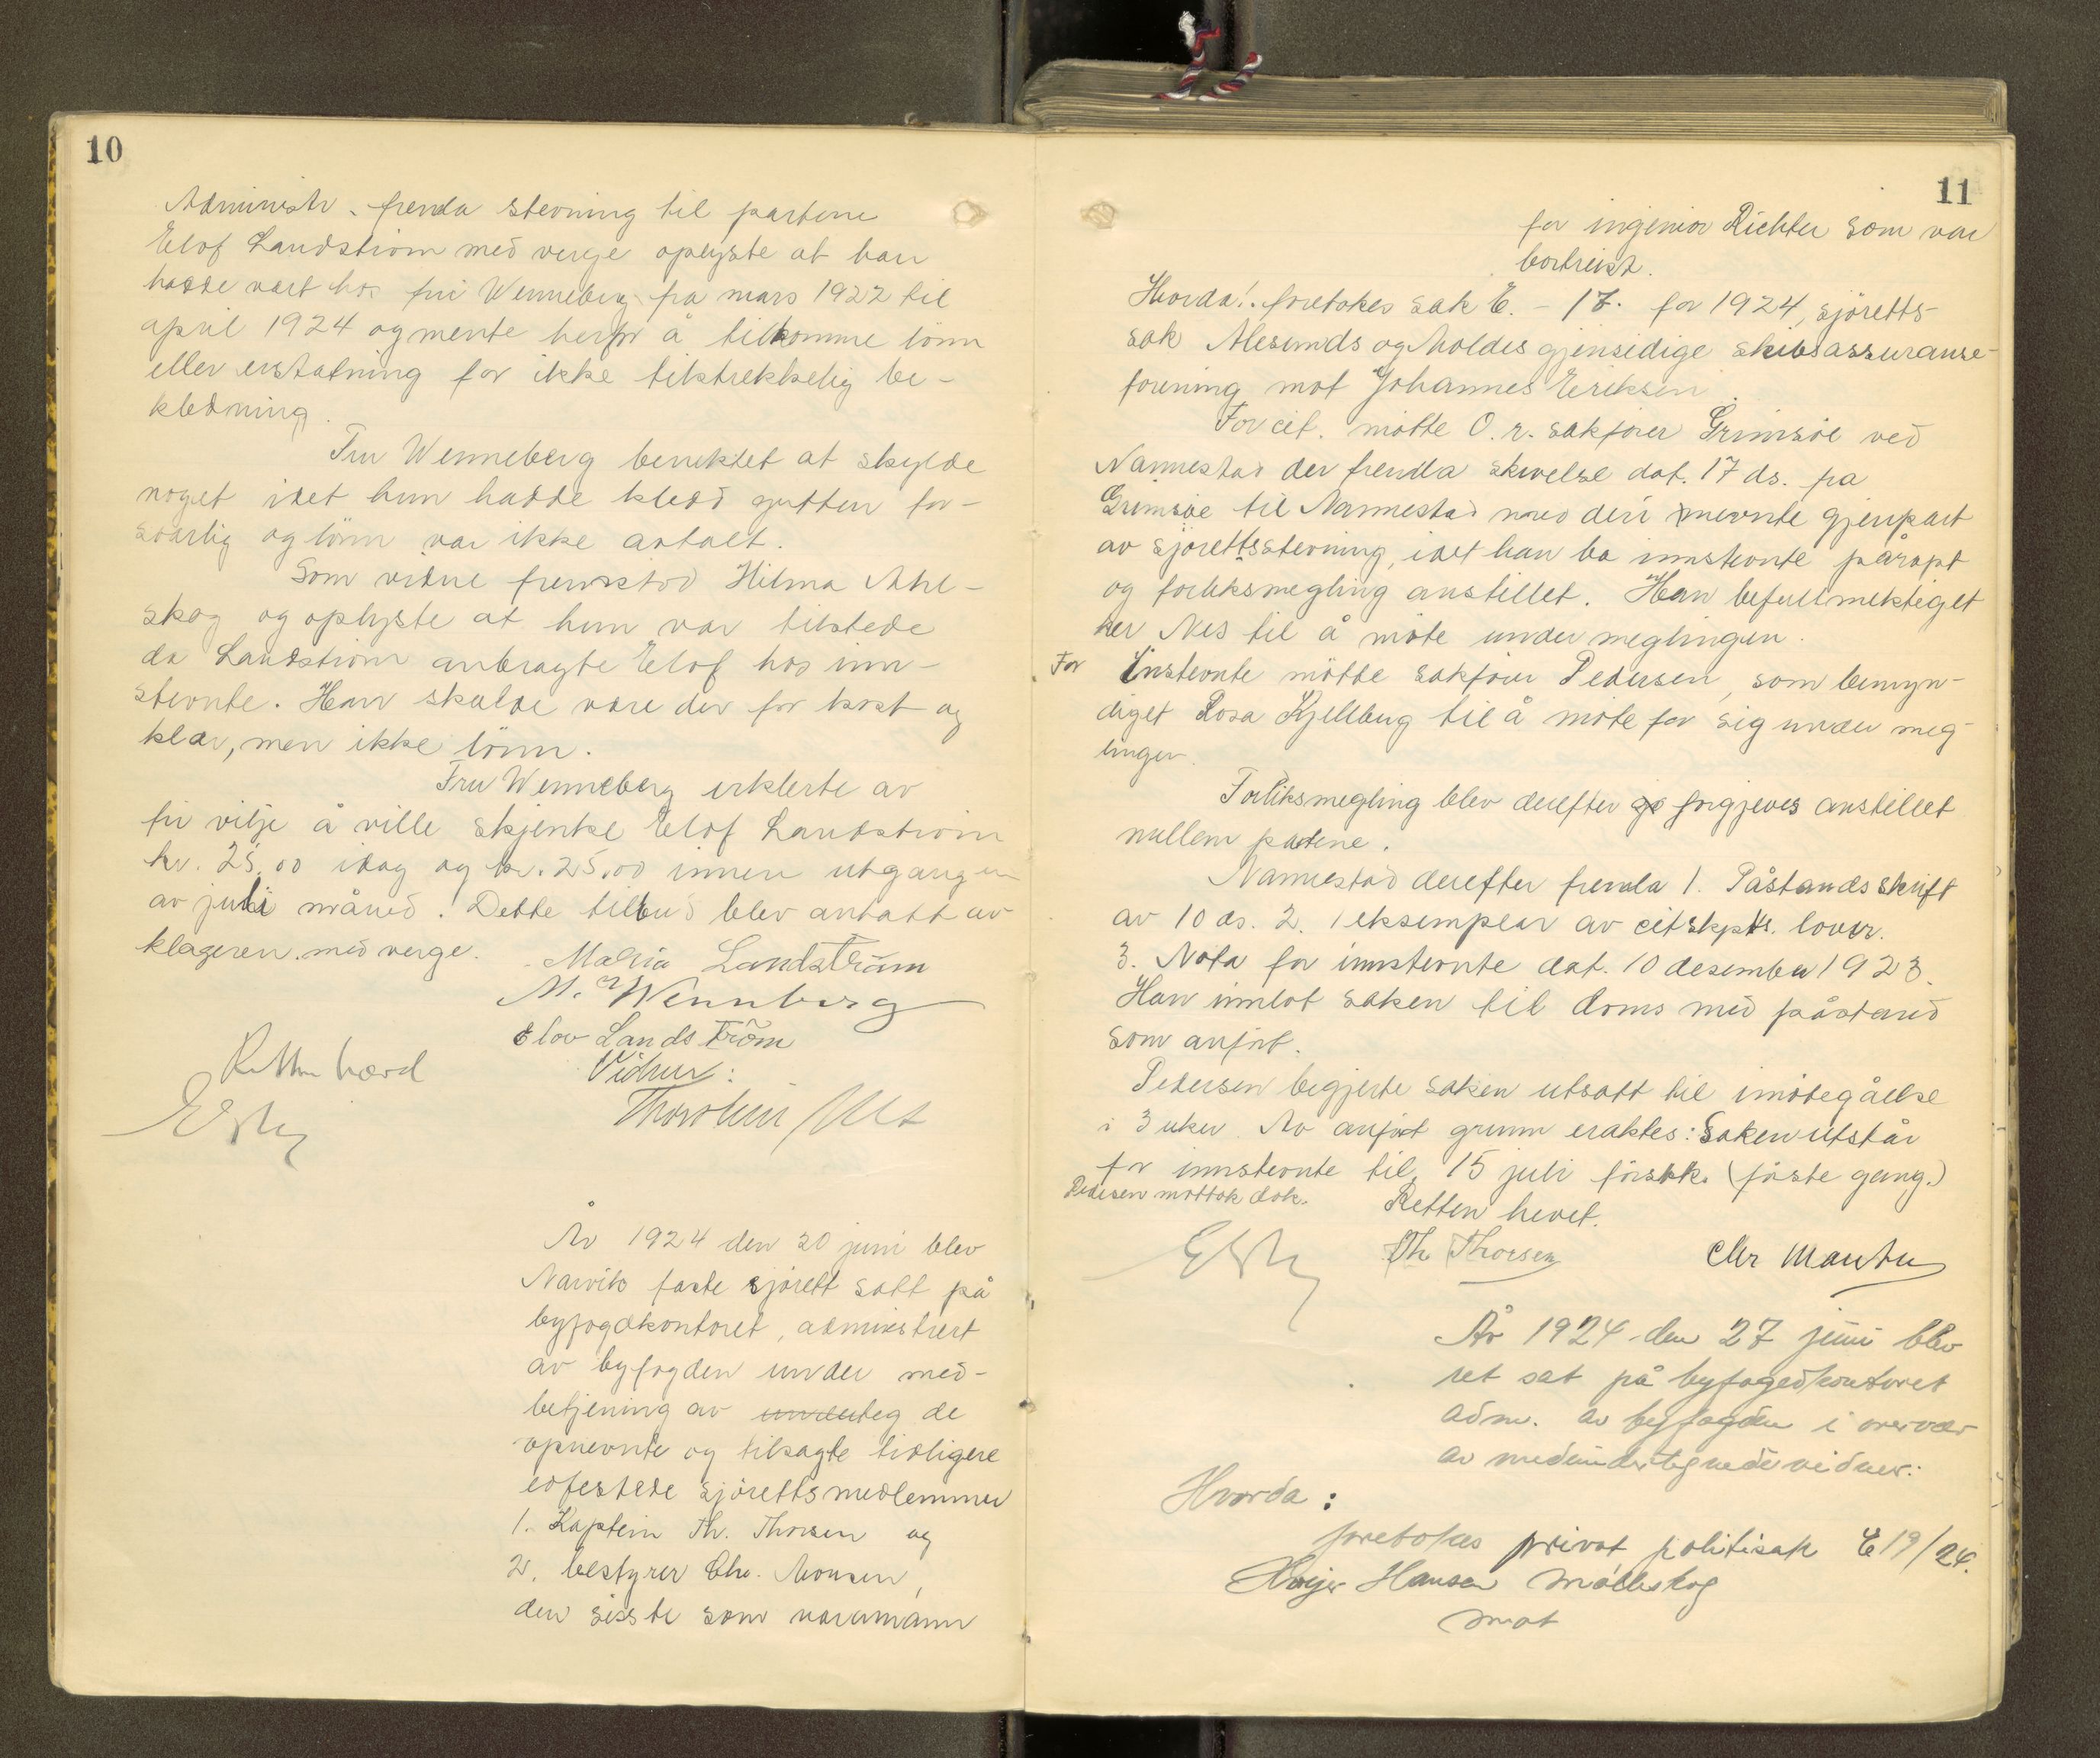 10
Administr. fremla stevning til partene
Elof Landström med verge oplyste at han
hadde vært hos fru Wenneberg fra mars 1922 til
april 1924 og mente herfor å tilkomme lönn
eller erstatning for ikke tilstrekkelig be-
kledning.
Fru Wenneberg benektet at skylde
noget idet hun hadde kledd gutten for-
svarlig og lönn var ikke avtalt.
Som vidne fremstod Hilma Ahl-
skog og oplyste at hun var tilstede
da Landström anbragte Elof hos inn-
stevnte. Han skulde være der for kost og
klær, men ikke lönn.
Fru Wenneberg erklerte av
fri vilje å ville skjenke Elof Landström
kr. 25,00 idag og kr. 25,00 innen utgangen
av juli måned. Dette tilbud blev antatt av
klageren med verge.
Maria Landström
M. Wennberg
Elov Landström
Retten hævd
Vidner:
År 1924 den 20 juni blev
Narvik faste sjörett satt på
byfogdkontoret, administrert
av byfogden under med-
betjening av underteg de
opnevnte og tilsagte tidligere
edfestede sjörettsmedlemmer
1. Kaptein Th. Thorsen og
2. bestyrer Chr. Monsen,
den siste som varamann
11
for ingeniör Richter som var
bortreist.
Hvorda: foretokes sak E. - 17. for 1924, sjöretts-
sak Alesunds og Moldes gjensidige skibsassuranse-
forening mot Johannes Eriksen.
For cit. mötte O.r. sakförer Grimsöe ved
Nannestad der fremla skrivelse dat. 17 ds. fra
Grimsöe til Nannestad med deri nevnte gjenpart
av sjörettsstevning, idet han ba innstevnte påropt
og forliksmegling anstillet. Han befullmektiget
her Nes til å möte under meglingen.
For Innstevnte mötte sakförer Pedersen, som bemyn-
diget Rosa Kjellberg til å möte for sig under meg-
lingen.
Forliksmegling blev derefter forgjeves anstillet
mellem partene.
Nannestad derefter fremla 1. Påstandsskrift
av 10 ds. 2. 1 eksemplar av citskpts. lover.
3. Nota for innstevnte dat. 10 desember 1923.
Han innlot saken til doms med påstand
som anfört.
Pedersen begjerte saken utsatt til imötegåelse
i 3 uker. Av anfört grunn eraktes: Saken utstår
for innstevnte til 15 juli förstk. (förste gang.)
Pedersen mottok dok.
Retten hevet.
Th Thorsen
Chr Monsen
År 1924 den 27 juni blev
ret sat på byfogedkontoret
adm. av byfogden i overvær
av medundertegnede vidner:
Hvorda:
foretokes privat politisak E 19/24.
Hansen Mölleskog
mot